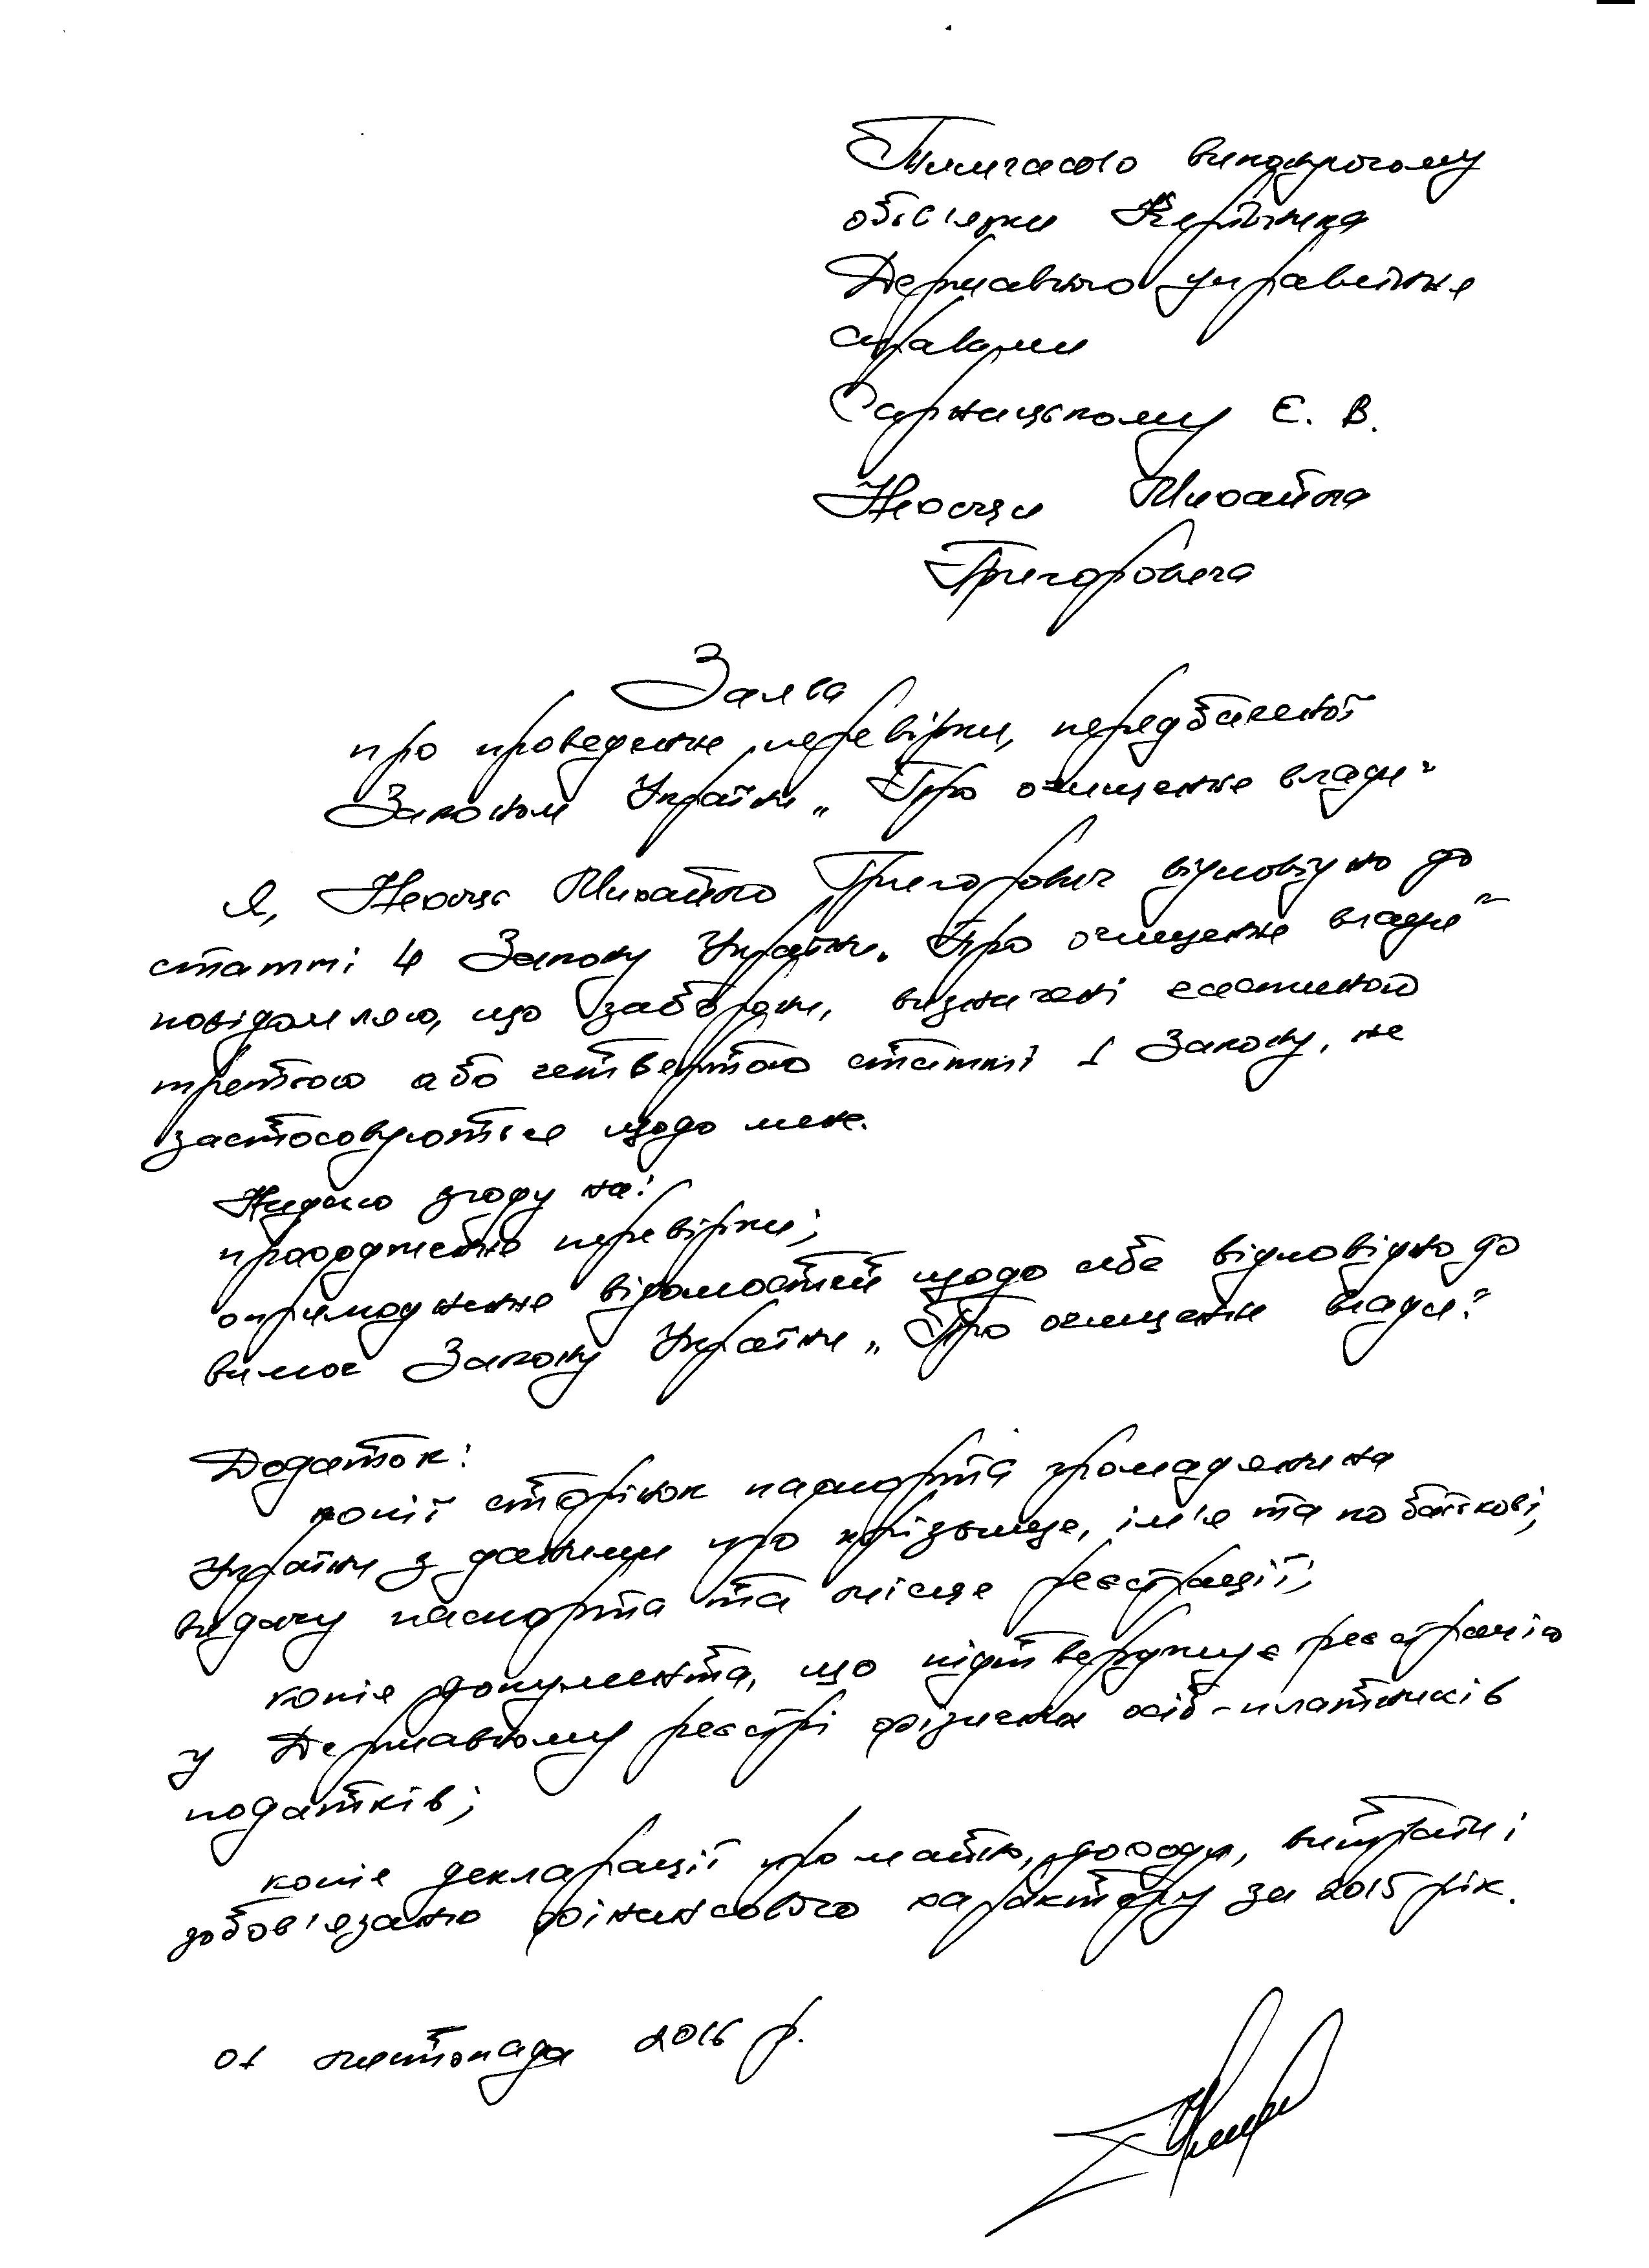 Тимчасово виконуючому
обов'язки Керівника
Державного управління
справами
Сарнацькому Є. В.
Михайла
Григоровича
Заява
про проведення перевірки, передбаченої
Законом України „Про очищення влади"
Я, Михайло Григорович відповідно до
статті 4 Закону України „Про очищення влади"
повідомляю, що заборони, визначені частиною
третьою або четвертою статті 1 Закону, не
застосовуються щодо мене.
Надаю згоду на:
проходження перевірки;
оприлюднення відомостей щодо себе відповідно до
вимог Закону України „Про очищення влади".
Додаток:
копії сторінок паспорта громадянина
України з даними про прізвище, ім'я та по батькові,
видачу паспорта та місце реєстрації;
копія документа, що підтверджує реєстрацію
у Державному реєстрі фізичних осіб-платників
податків;
копія декларації про майно, доходи, витрати і
зобов'язання фінансового характеру за 2015 рік.
01 листопада 2016 р.